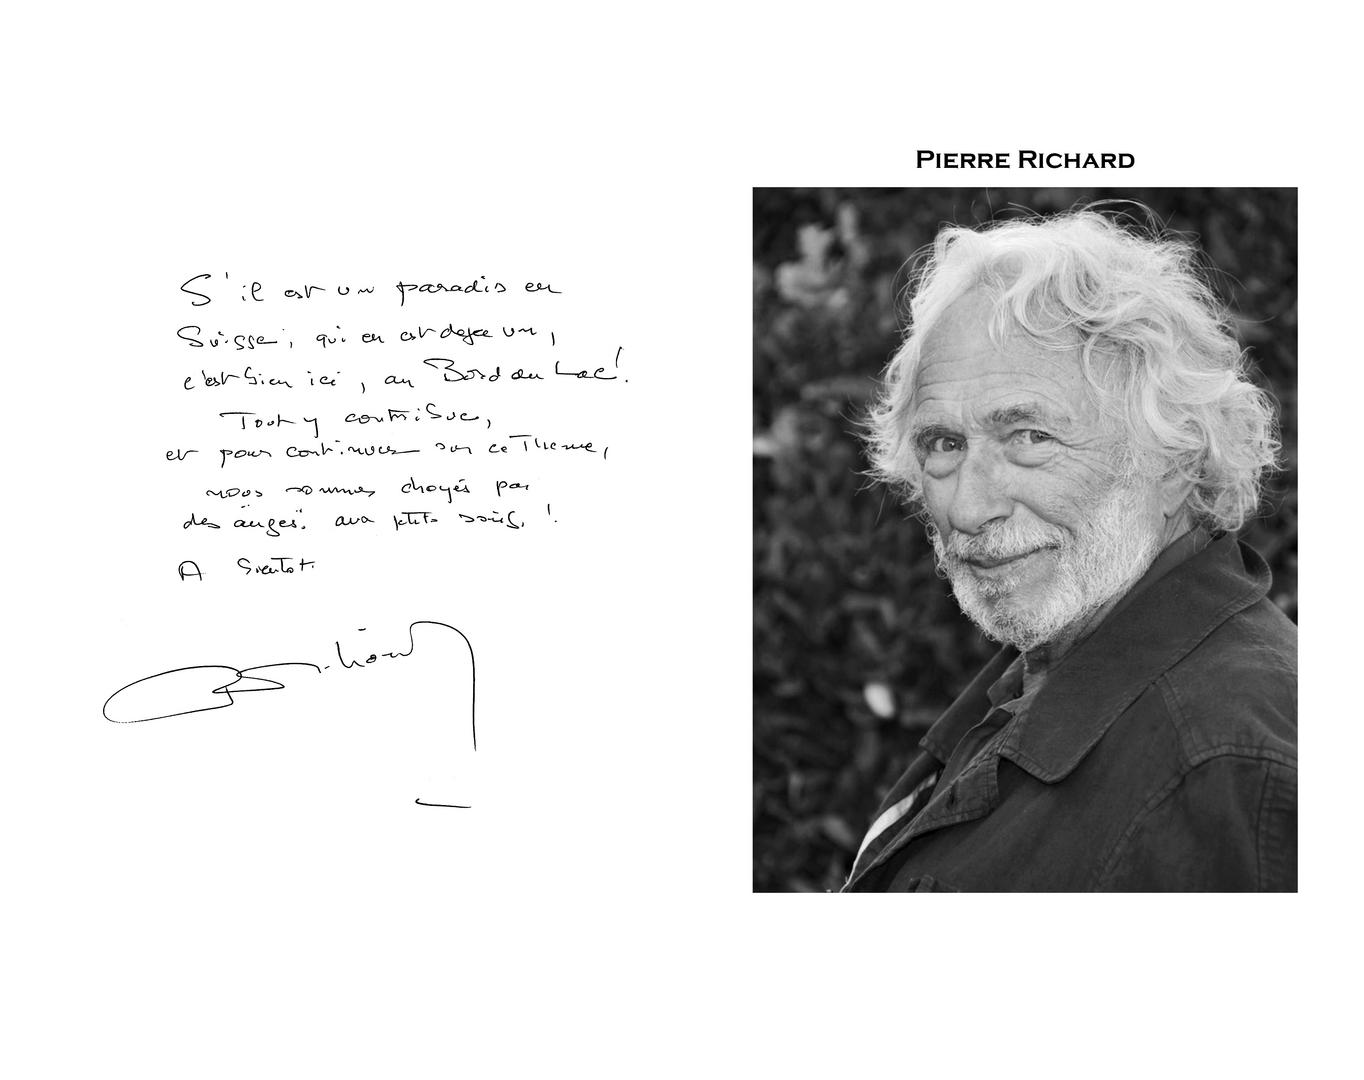 S'il est un paradis en
Suisse, qui en est deja un,
c'est bien ici, au Bord du Lac !
Tout y contribue,
et pour continuer sur ce Theme,
nous sommes choyés par
des "anges" aux ptits soins, !
A Bientot.
PIERRE RICHARD